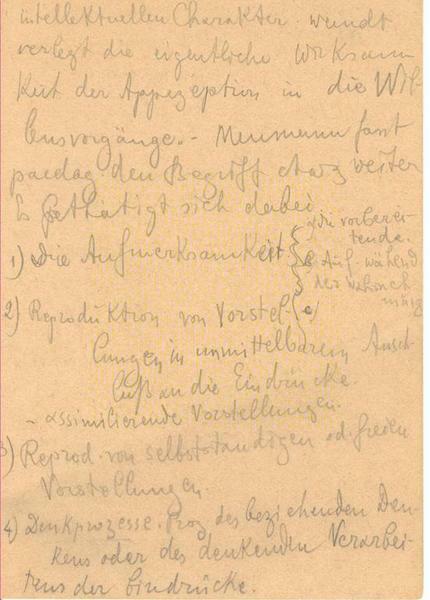 intellektuellen Charakter. wundt
verlegt die eigentliche Wirksam
keit der Apperzeption in die Wil
lensvorgänge. - Meumann fasst
paedag. den Begriff etwas weiter
Es bethätigt sich dabei
1) die Aufmerksamkeit
die vorberei-
tende.
Auf. während
der wahrneh
mung
c)
2) Reproduktion von Vorstel-
lungen in unmittelbarem Ansch
luß an die Eindrücke.
- assimilierende Vorstellungen.
3) Reprod. von selbstständigen od. freien
Vorstellungen.
4) Denkprozesse. Proz des beziehenden Den-
kens oder des denkenden Verarbei-
tens der Eindrücke.